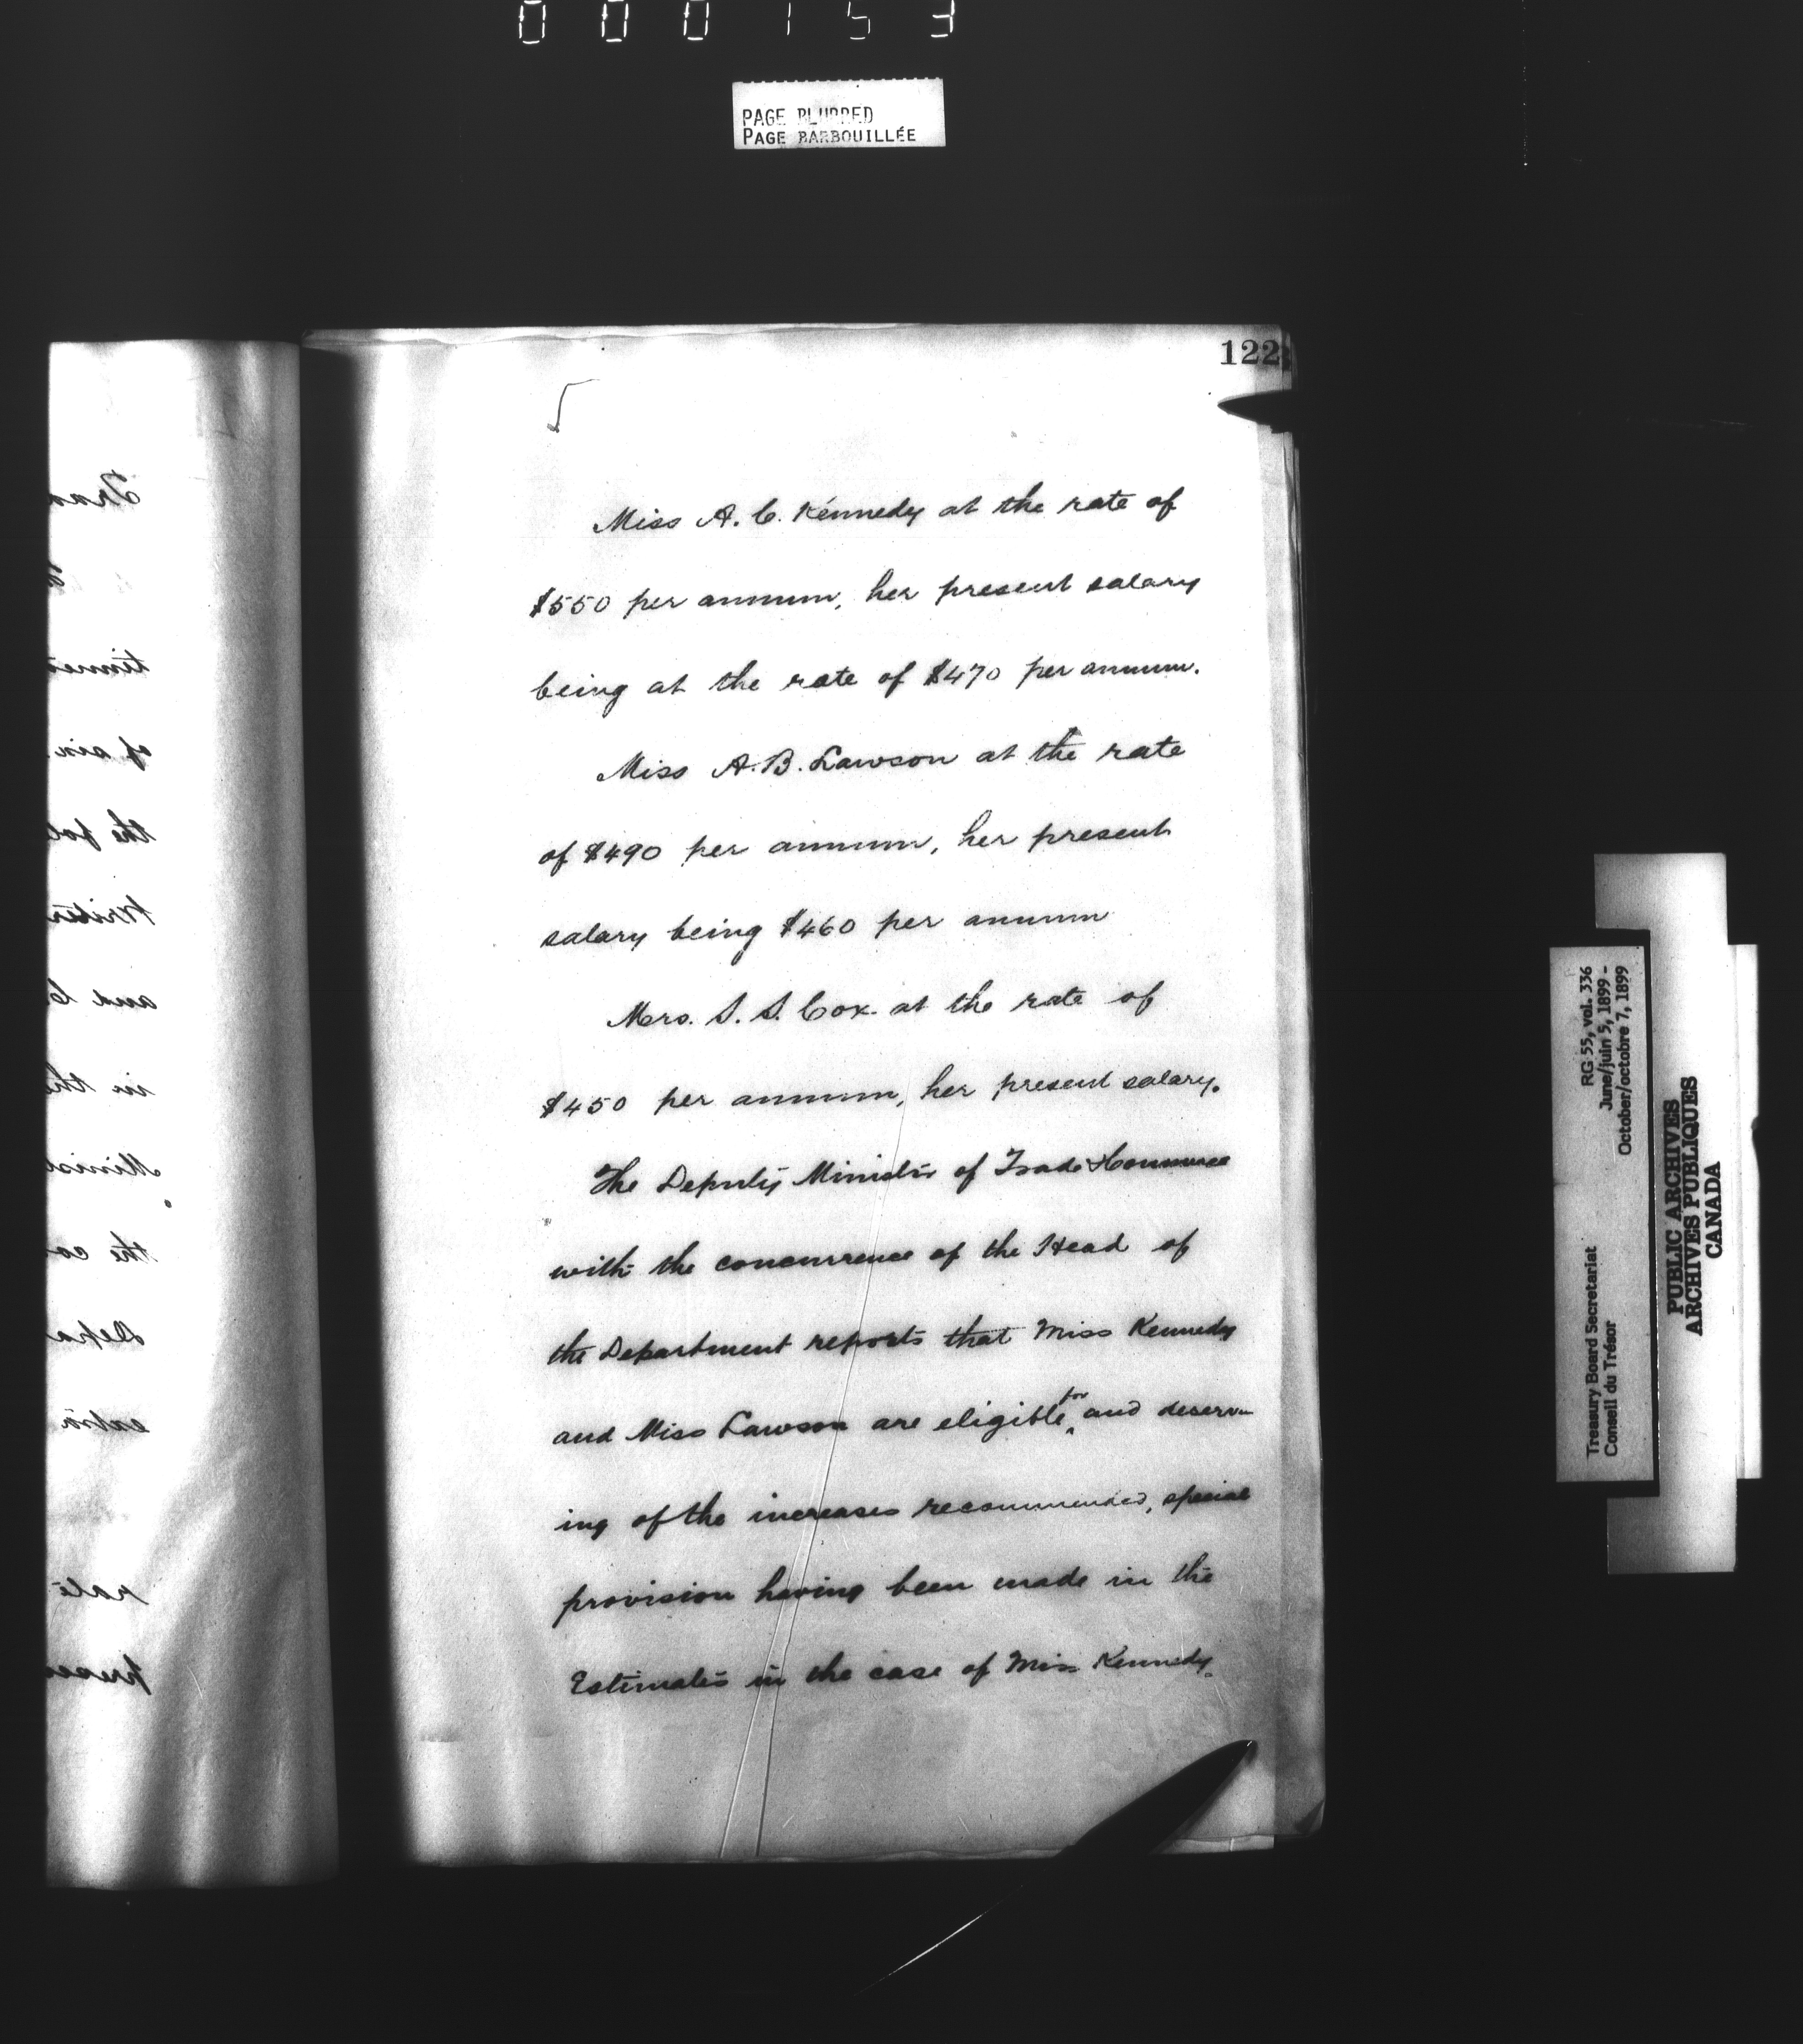 000153
PAGE BLURRED
PAGE BARBOUILLÉE
122
Miss A. C. Kennedy at the rate of
$550 per annum, her present salary
being at the rate of $470 per annum.
Miss A. B. Lawson at the rate
of $490 per annum, her present
salary being $460 per annum
Mrs. S. S. Cox at the rate of
$450 per annum, her present salary.
The Deputy Minister of Trade & Commerce
with the concurrence of the Head of
the Department reports that Miss Kennedy
and Miss Lawson are eligible for and deserv-
ing of the increases recommended, special
provision having been made in the
Estimates in the case of Miss Kennedy.
RG 55, vol. 336
June/juin 5, 1899 -
October/octobre 7, 1899
Treasury Board Secretariat
Conseil du Trésor
PUBLIC ARCHIVES
ARCHIVES PUBLIQUES
CANADA